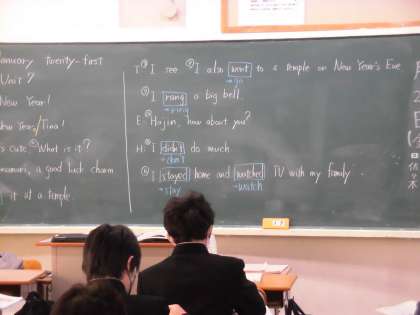 January twenty-first
Unit 7
New Year!
New Year, Tina!
's cute. What is it?
omamori, a good luck charm
it at a temple.
T: I see. I also went to a temple on New Year's Eve.
→go
I rang a big bell.
→ring
E: Hajin, how about you?
H: I didn't do much.
→don't
I stayed home and watched TV with my family.
→stay →watch